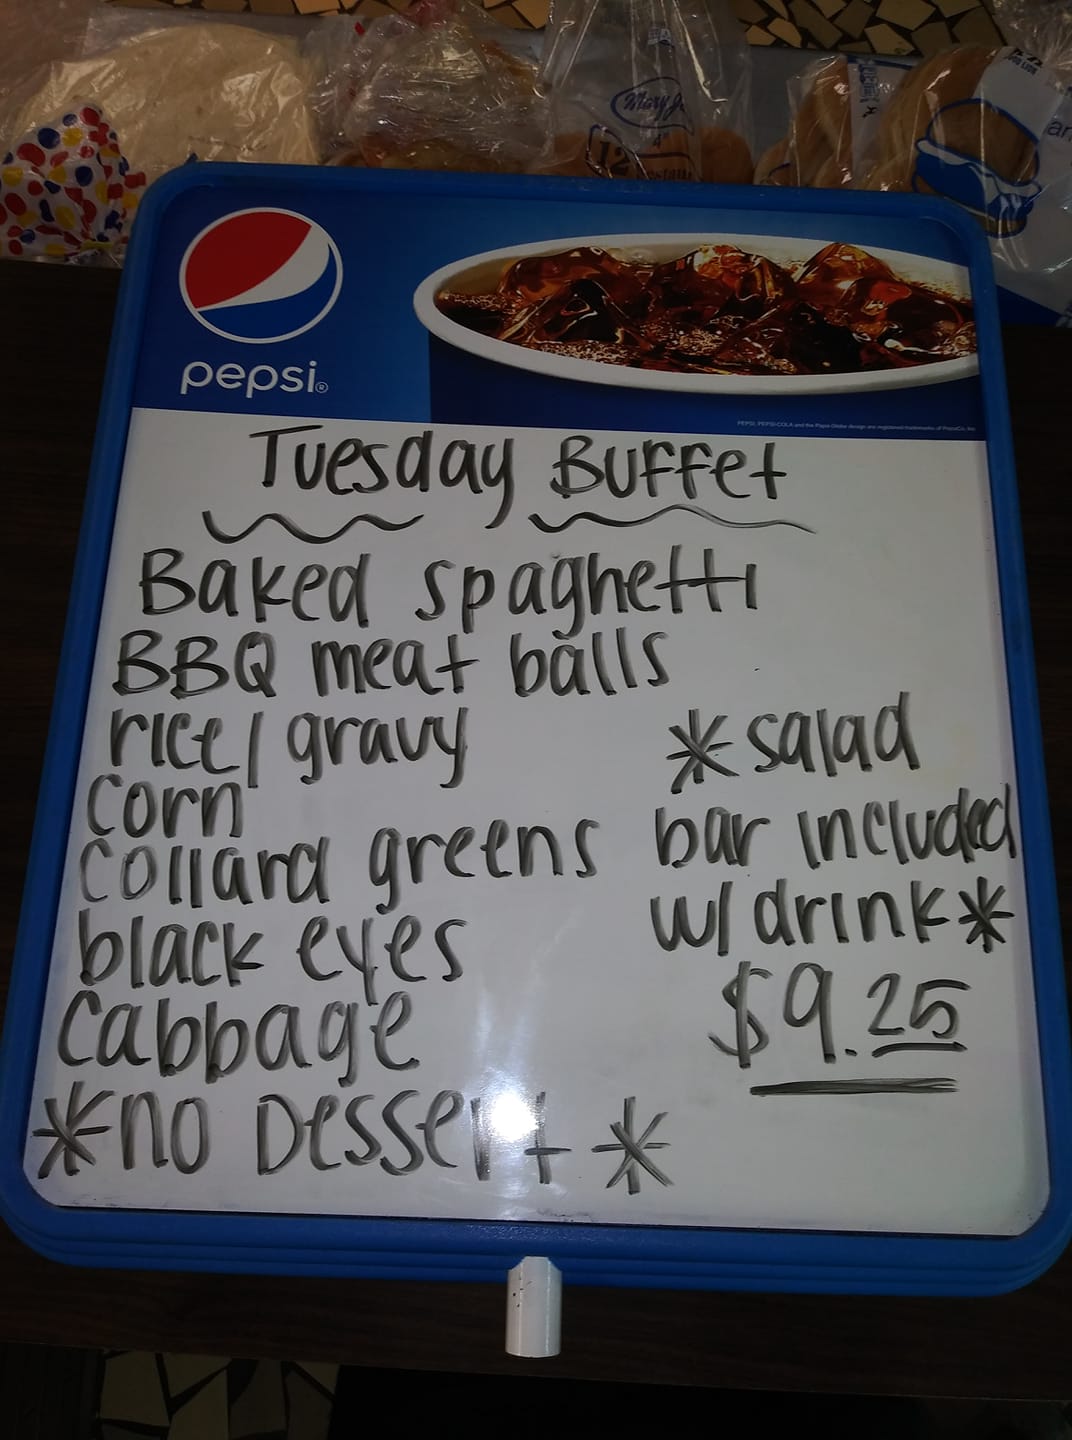 Mary J
12
4"
pepsi®
PEPSI, PEPSI-COLA and the Pepsi Globe design are registered trademarks of PepsiCo, Inc.
Tuesday Buffet
Baked spaghetti
BBQ meat balls
rice/gravy
Corn
Collard greens
black eyes
Cabbage
*no Dessert*
*salad
bar included
w/drink*
$9.25